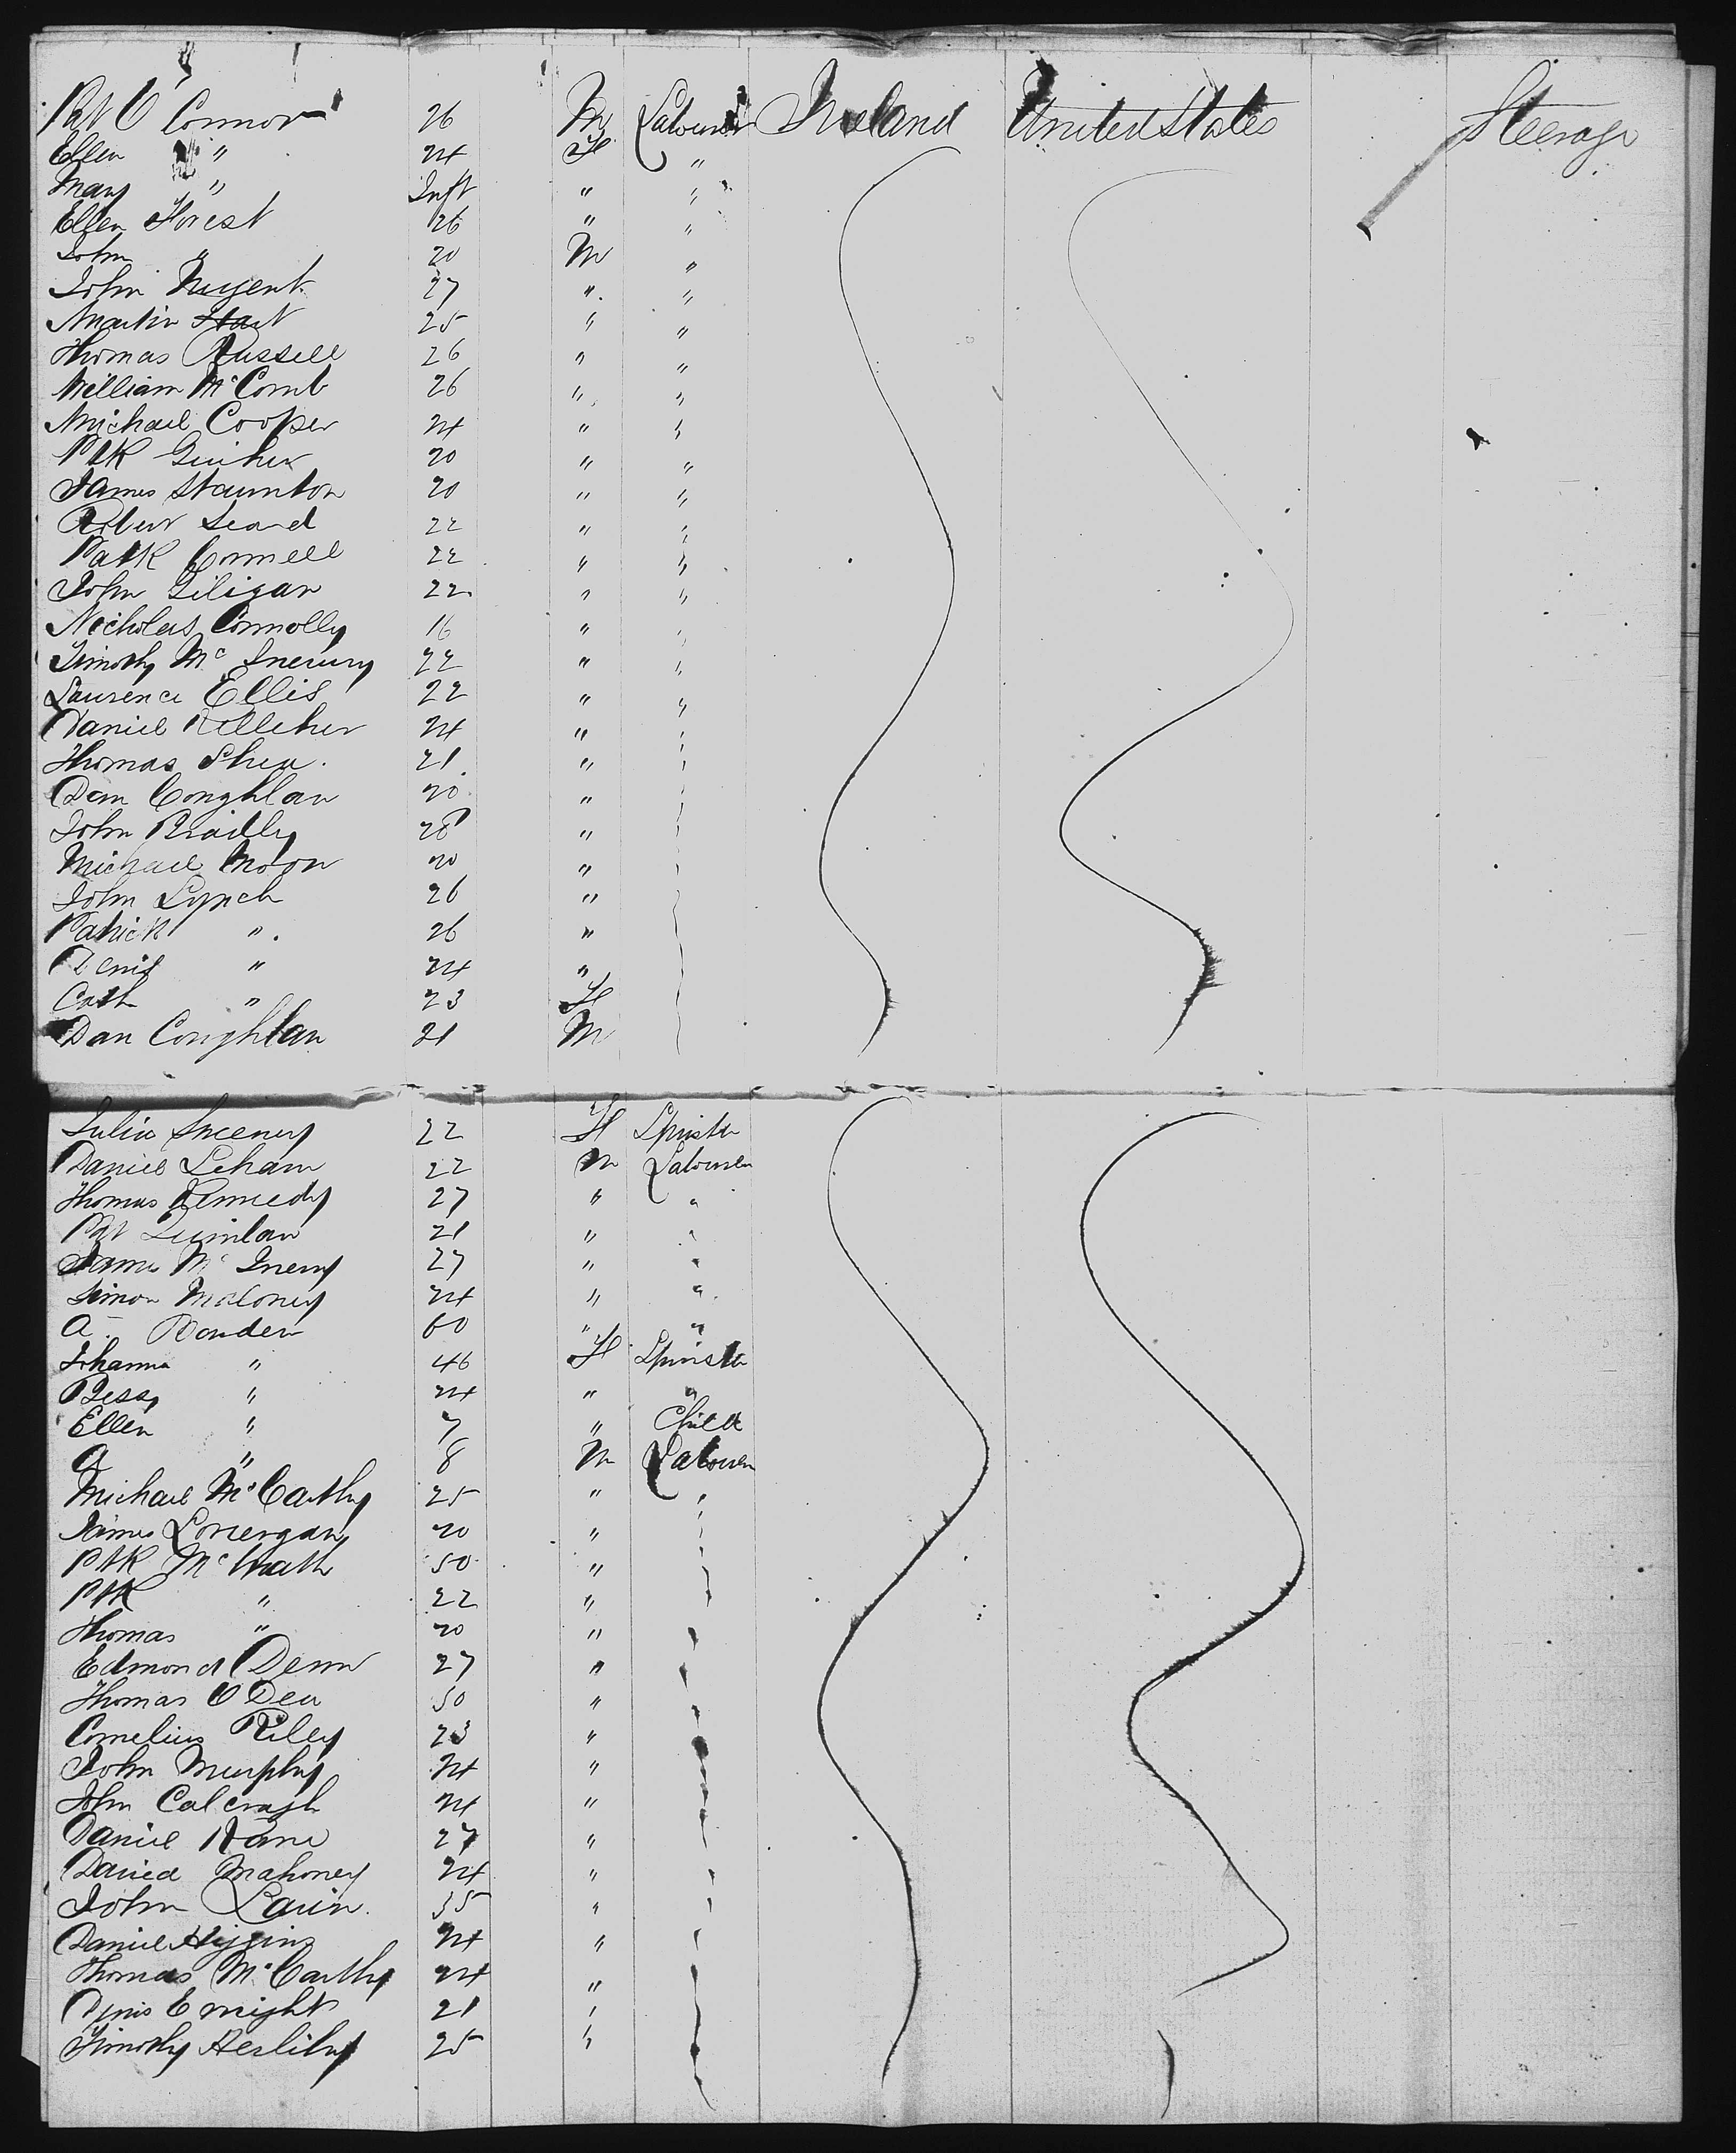 Pat O'Connor 26 M Labourer Ireland United States Steerage
Ellen " 24 F "
Mary " Inft " "
Ellen Forest 26 " "
John " 20 M "
John Nugent 27 " "
Martin Hart 25 " "
Thomas Russell 26 " "
William McComb 26 " "
Michael Cooper 24 " "
Ptk 20 " "
James Staunton 20 " "
Robert 22 " "
Patk Connell 22 " "
John Giligan 22 " "
Nicholas Connolly 16 " "
Timothy Mc Inerury 22 " "
Laurence Ellis 22 " "
Daniel Kelleher 24 "
Thomas Shea 21 "
Dan Coughlan 20 "
John Bradly 28 "
Michael Moon 20 "
John Lynch 26 "
Patrick " 26 "
Denis " 24 "
Cath " 23 F
Dan Coughlan 21 M
Julia Sweeney 22 F Spinster
Daniel Leham 22 M Labourer
Thomas Kennedy 27 " "
Pat Quinlan 21 " "
James Mc Inery 27 " "
Simon Maloney 24 " "
A. Bowden 60 " "
Johanna " 46 F Spinster
Bessy " 24 " "
Ellen " 7 " Child
A " 8 M Labourer
Michael McCarthy 25 " "
James Lonergan 20 "
Ptk McGrath 50 "
Ptk " 22 "
Thomas " 20 "
Edmond Denn 27 "
Thomas O Dea 50 "
Cornelius Riley 23 "
John Murphy 24 "
John Calcragh 24 "
Daniel Kane 27 "
David Mahoney 24 "
John 35 "
Daniel Higgins 24 "
Thomas McCarthy 24 "
Dynis Enright 21 "
Timothy Herlihy 25 "